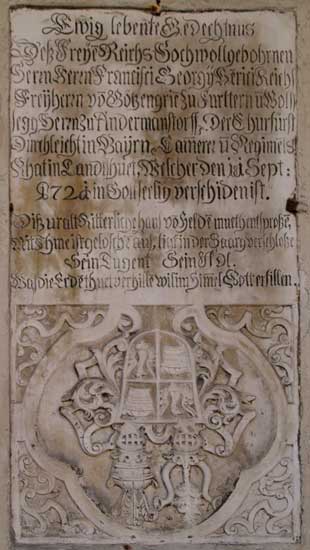 Ewig lebente Gedechtnus
Deß Freÿe Reichs Hochwollgebohrnen
Herrn Herrn Francisci Georgÿ Reichs
Freÿherrn vō Götzengrie zu Furttern ū Wolf
segg Herrn zu Andermanstorff, Der Churfürst
Durchleicht in Baÿrn, Camerer ū Regimets
Rhat in Landtshuet, Welcher den 11 Sept:
1721 in Gott seelig verschiden ist.
Diß uralt Ritterliche haus vō Helde mueth entsproße,
Mit Ihme ist gelosche aus, ligt in der Saarg verschloße
Sein Tugent Sein
Was die Erde thuet verhille wil im Himel Gott erfillen.